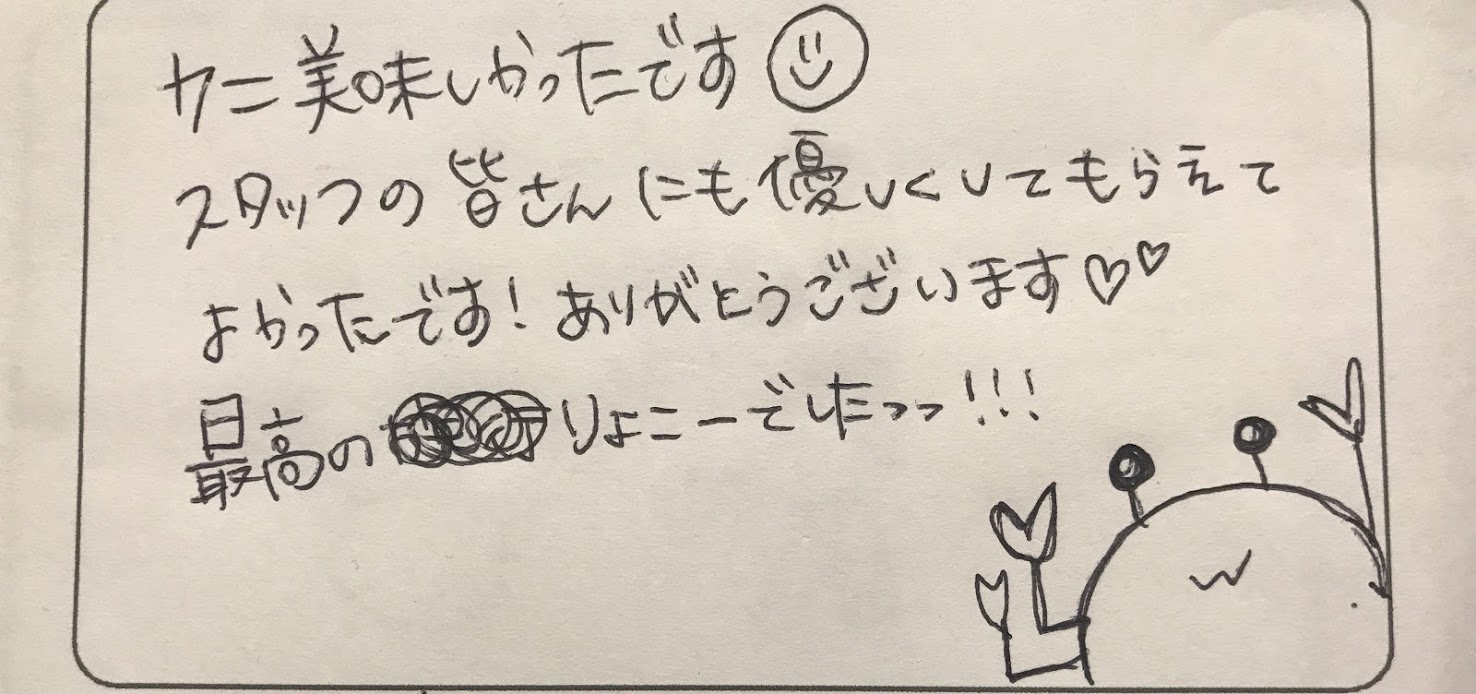 カニ美味しかったです
スタッフの皆さんにも優しくしてもらえて
よかったです！ありがとうございます♡♡
最高のりょこーでしたっっ!!!